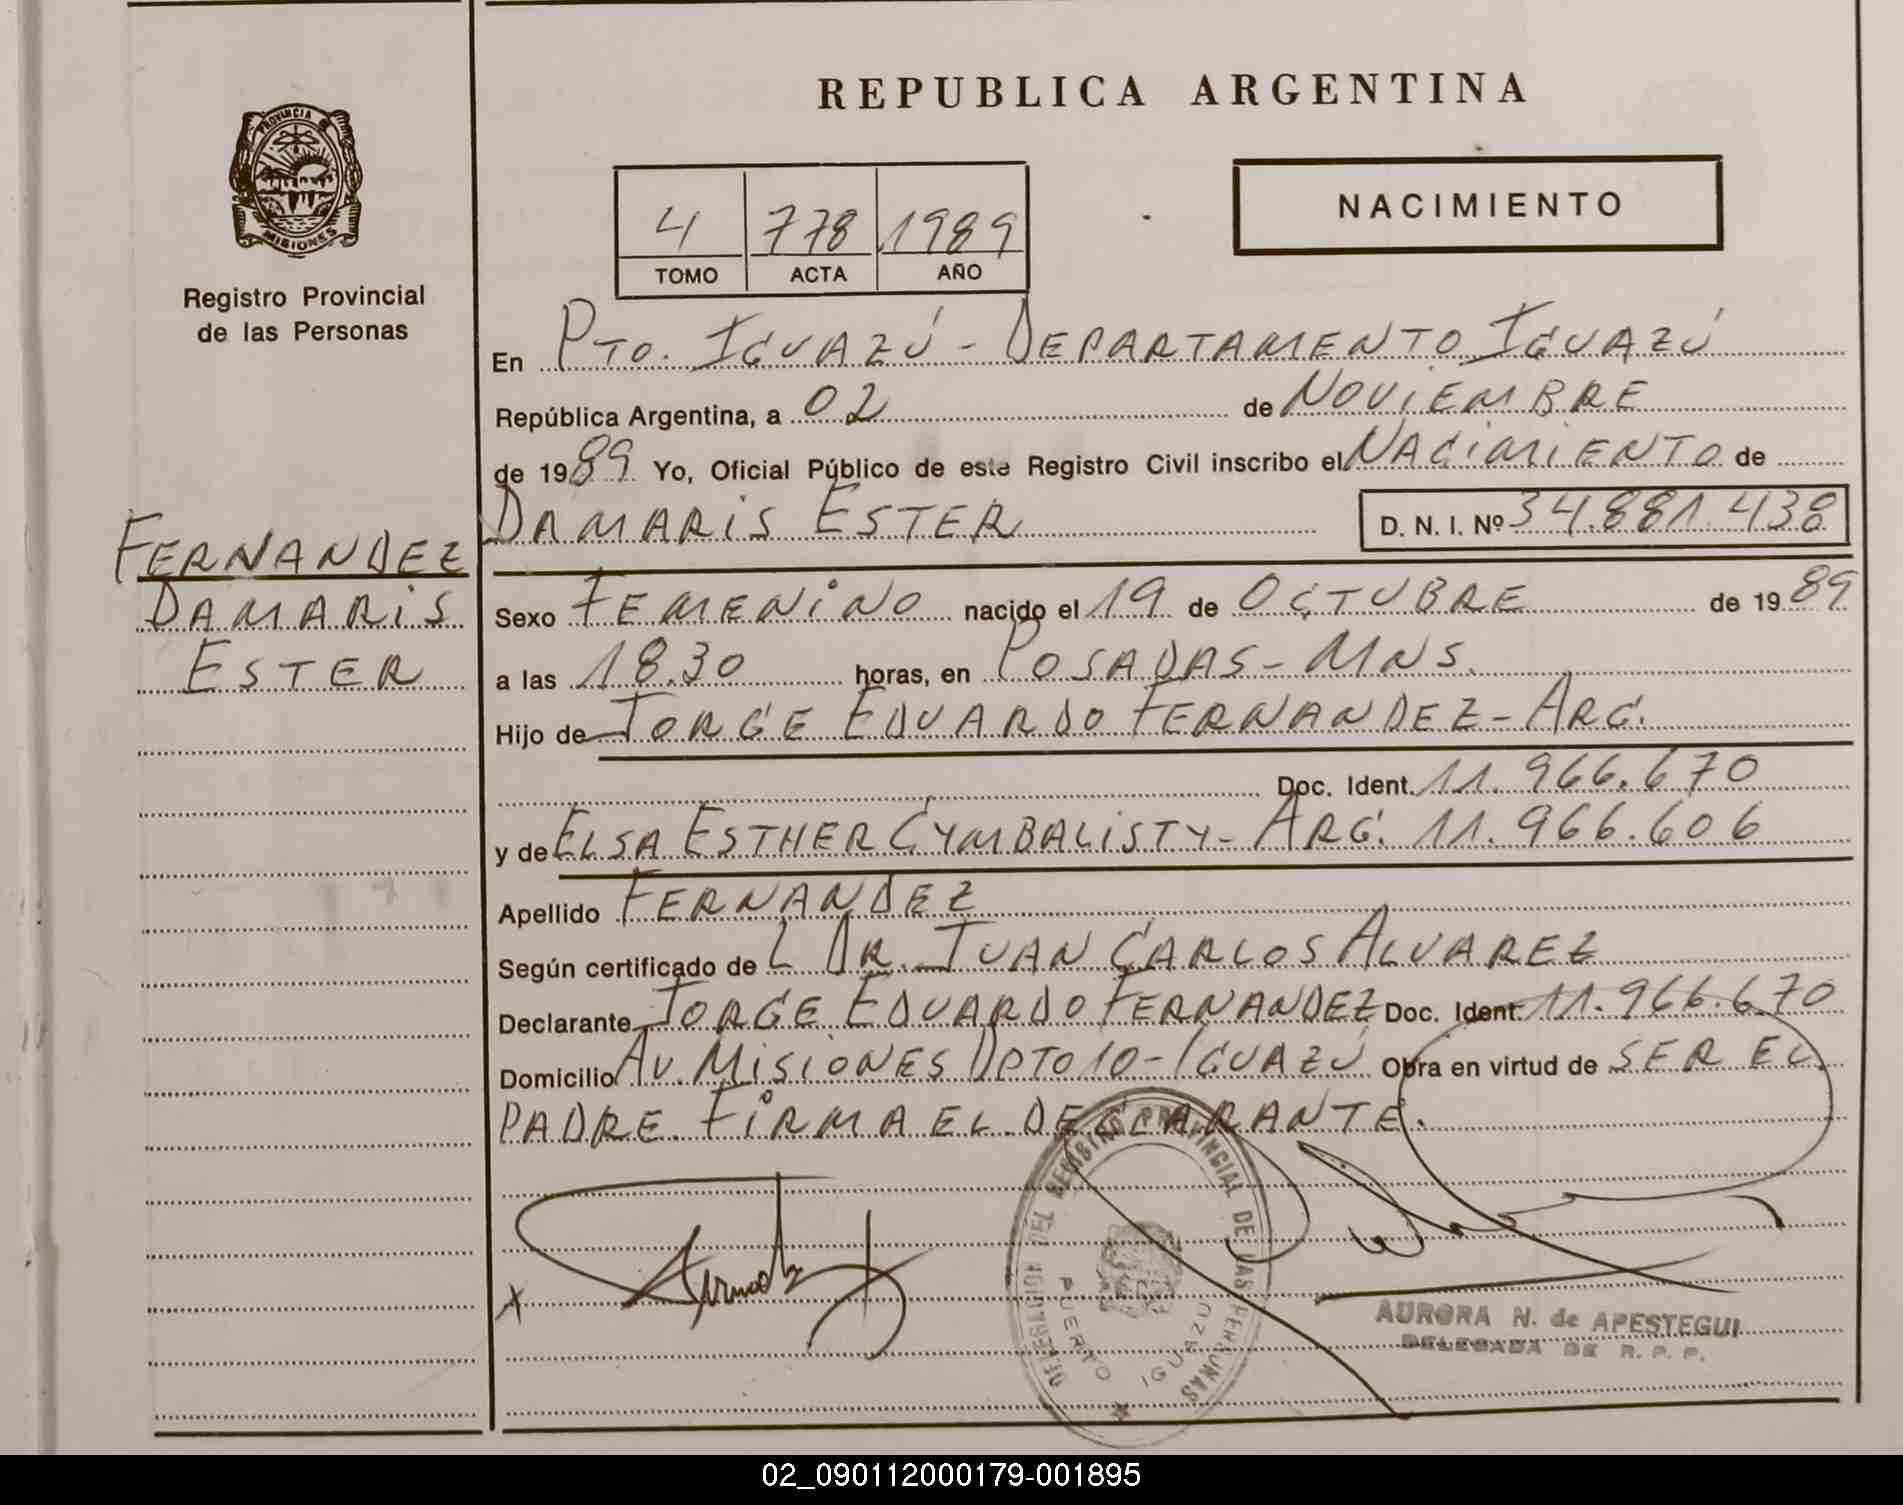 PROVINCIA DE
MISIONES
Registro Provincial
de las Personas
FERNANDEZ
DAMARIS
ESTER
REPUBLICA ARGENTINA
NACIMIENTO
4 778 1989
TOMO ACTA AÑO
En PTO. IGUAZÚ - DEPARTAMENTO IGUAZÚ
República Argentina, a 02 de NOVIEMBRE
de 1989 Yo, Oficial Público de este Registro Civil inscribo el NACIMIENTO de
DAMARIS ESTER D. N. I. Nº 34.881.438
Sexo FEMENINO nacido el 19 de OCTUBRE de 1989
a las 18.30 horas, en POSADAS - MNS.
Hijo de JORGE EDUARDO FERNANDEZ - ARG.
Doc. Ident. 11.966.670
y de ELSA ESTHER CYMBALISTY - ARG. 11.966.606
Apellido FERNANDEZ
Según certificado de L DR. JUAN CARLOS ALVAREZ
Declarante JORGE EDUARDO FERNANDEZ Doc. Ident. 11.966.670
Domicilio AV. MISIONES DPTO 10 - IGUAZÚ Obra en virtud de SER EL
PADRE. FIRMA EL DECLARANTE.
X
DELEGACION DEL REGISTRO PROVINCIAL DE LAS PERSONAS
PUERTO IGUAZU
AURORA N. de APESTEGUI
DELEGADA DE R. P. P.
02_090112000179-001895